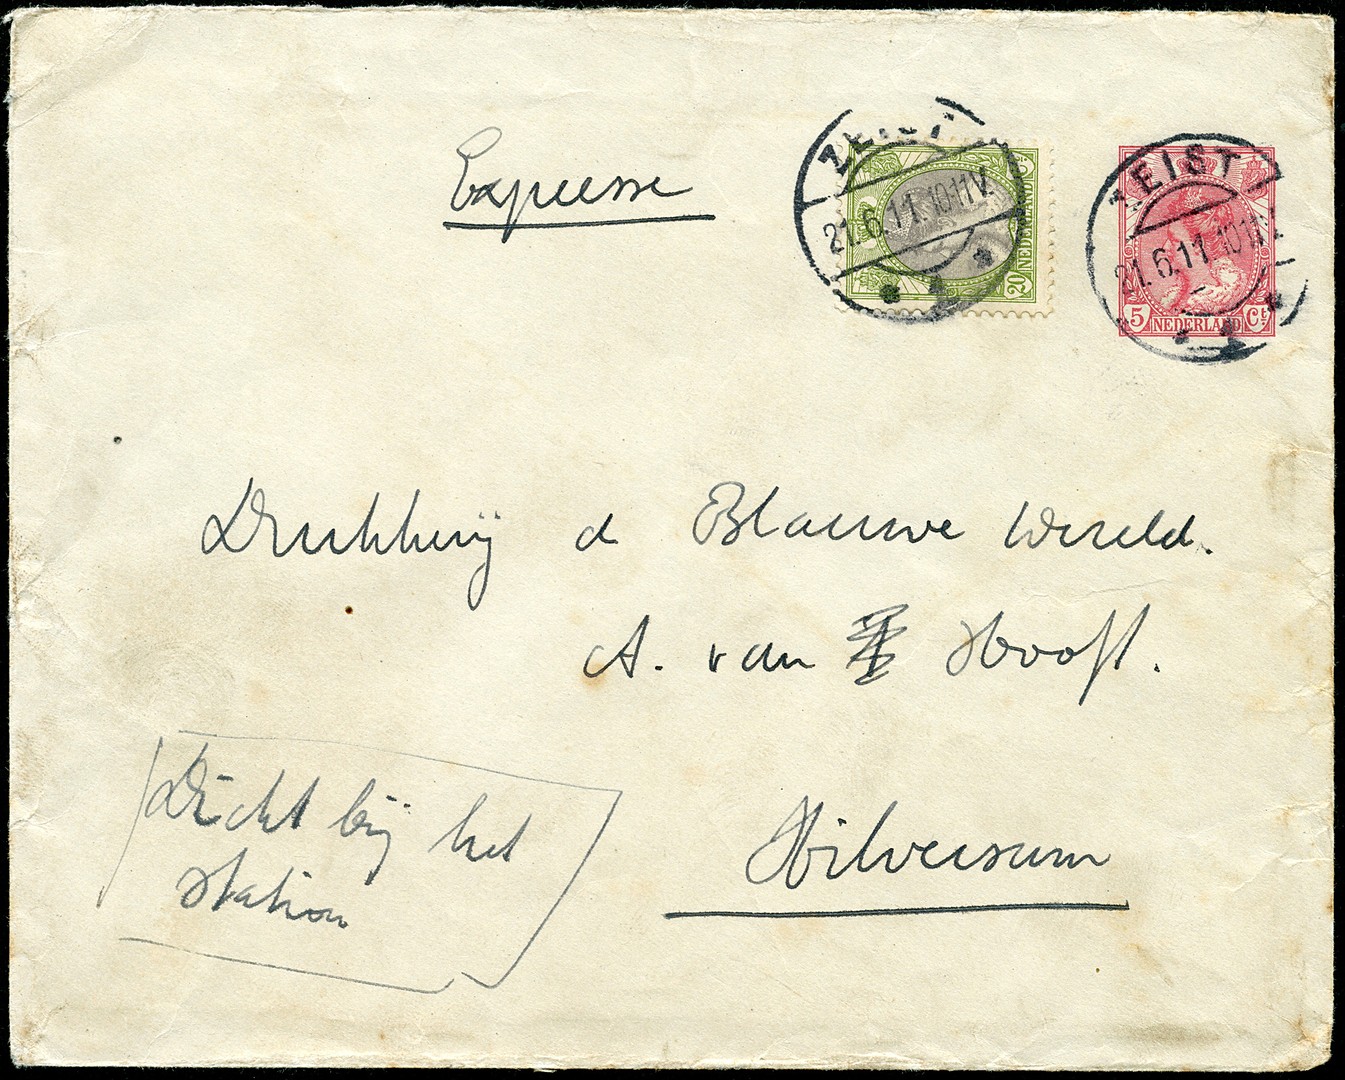 Expresse
ZEIST
21.6.11.1011V
20
NEDERLAND
ZEIST
21.6.11 1011V
5 NEDERLAND Ct
Drukkerij d Blauwe Wereld.
A. van Hooft.
Dicht bij het
station
Hilversum